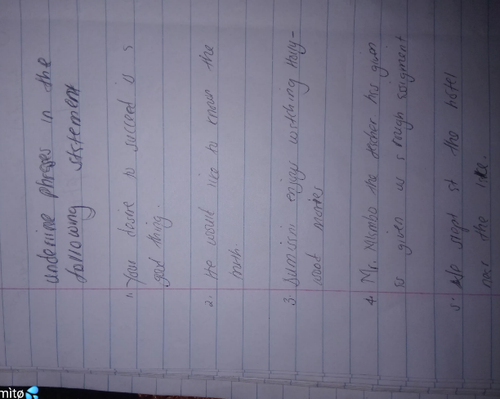 underline phrases in the
following statement
1. Your desire to succeed is a
good thing.
2. He would like to known the
truth.
3. Sumaisin enjoys watching holly-
wood movies
4. Mr. Mlimbo the teacher has given
so given us a rough assigment
5. We slept at the hotel
near the lake.
mitø💦